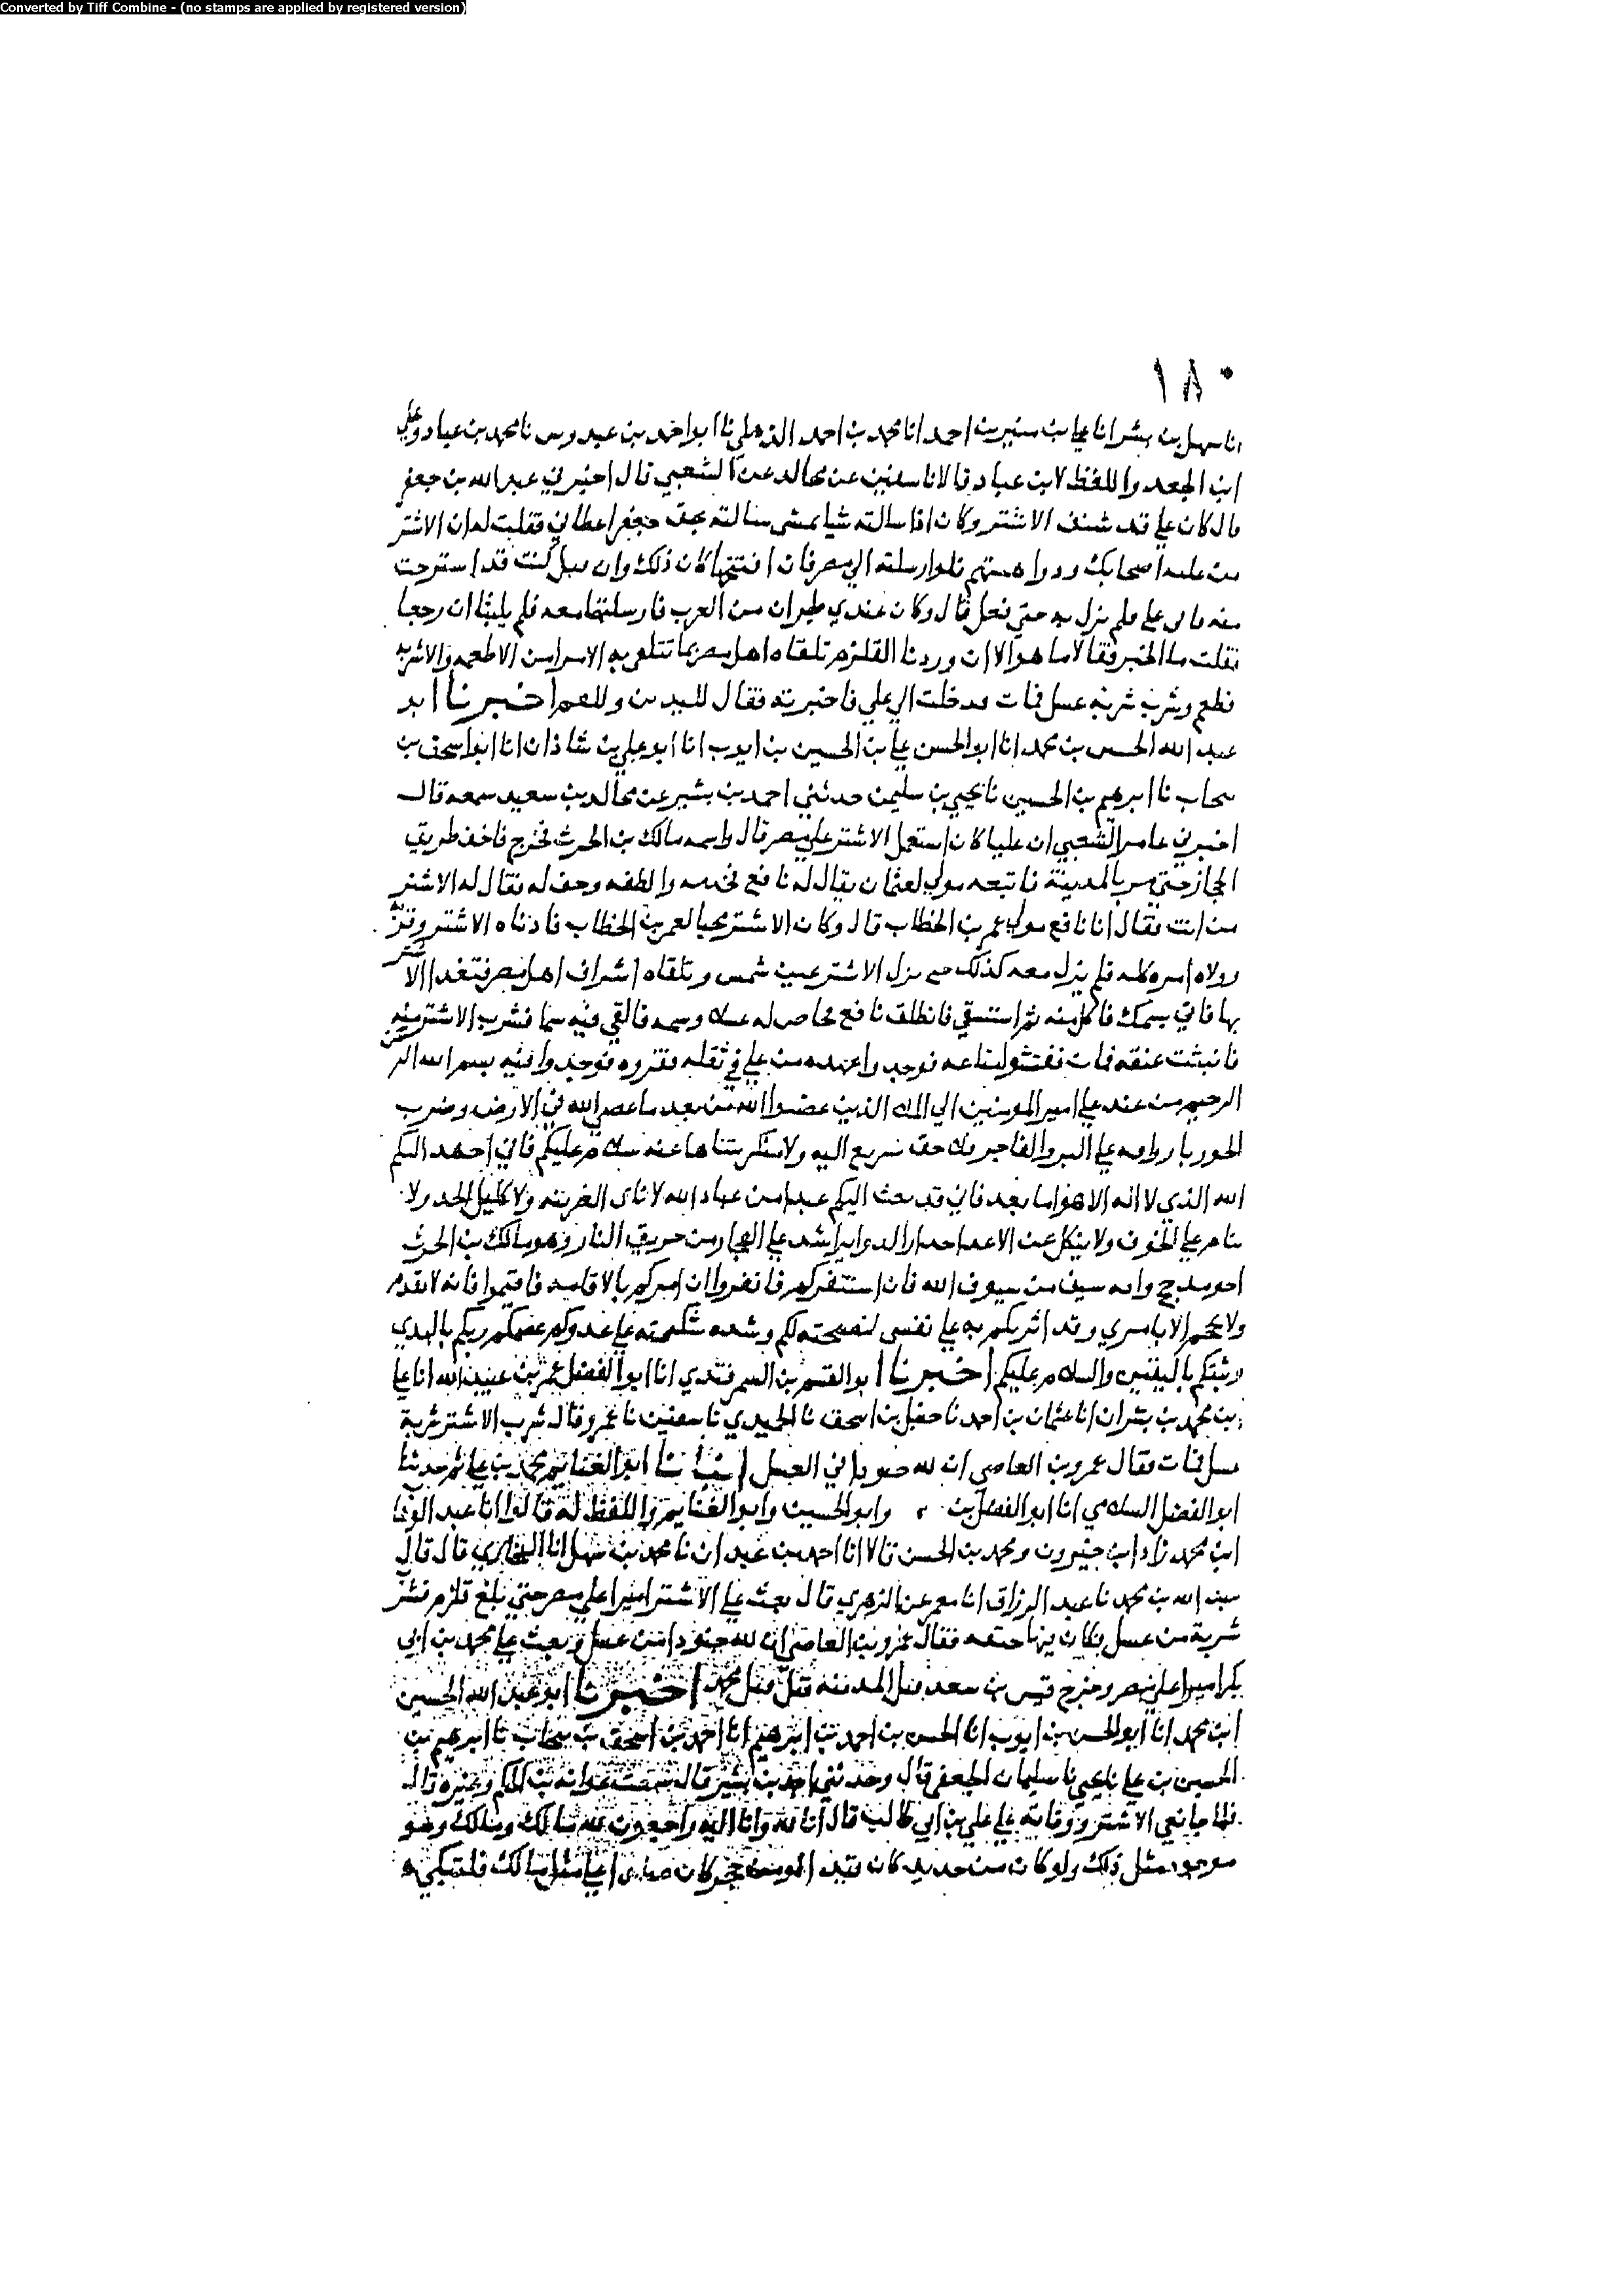 Converted by Tiff Combine - (no stamps are applied by registered version)
١٨٠
انا سهل بن بشر انا علي بن منير بن احمد انا محمد بن احمد الذهلي نا ابو احمد بن عبدوس نا محمد بن عباد وعلي
ابن الجعد واللفظ لابن عباد قالا نا سفين عن مجالد عن الشعبي قال اخبرني عبد الله بن جعفر
قال كان علي قد شنف الاشتر وكان اذا سالته شيا بحق جعفر اعطاني فقلت له ان الاشتر
من اصحابك فلو ارسلته الي مصر فان افتتحها كان ذلك وان كنت قد استرحت
منه علي فلم يزل به حتي فعل قال وكان عندي طيران من العرب فارسلتهما معه فلم يلبثا ان رجعا
فقلت ما الخبر فقالا ما هو الا ان وردنا القلزم تلقاه اهل مصر بما تتلقي به الامرا من الاطعمه والاشربه
فطعم وشرب شربة عسل فمات فدخلت الي علي فاخبرته فقال لليدين وللفم اخبرنا ابو
عبد الله الحسين بن محمد انا ابو الحسن علي بن الحسين بن ايوب انا ابو علي بن شاذان انا ابو اسحق بن
نا ابرهيم بن الحسين نا يحيي بن سليمن حدثني احمد بن بشير عن مجالد بن سعيد سمعه قال
اخبرني عامر الشعبي ان عليا كان استعمل الاشتر علي مصر قال واسمه مالك بن الحرث فخرج فاخذ طريق
الحجاز حتي مر بالمدينة فاتبعه مولي لعثمان يقال له نافع فخدمه والطفه وحف له فقال له الاشتر
من انت فقال انا نافع مولي عمر بن الخطاب قال وكان الاشتر محبا لعمر بن الخطاب فادناه الاشتر وقرّبه
وولاه امره كله فلم يزل معه كذلك حتى نزل الاشتر عين شمس وتلقاه اشراف اهل مصر فتغدا الاشتر
بها فاتي بسمك فاكل منه ثم استسقي فانطلق نافع له عسلا فالقي فيه سما فشرب الاشتر منه
فانبتت عنقه فمات ففتشوا متاعه فوجدوا عهده من علي في ثقله فقروه فوجدوا فيه بسم الله الرحمن
الرحيم من عند علي امير المومنين الي الملا الذين غضبوا لله من بعد ما عصي الله في الارض وضرب
الجور بارواقه علي البر والفاجر فلا حق نريع اليه ولا منكر يتناها عنه سلام عليكم فاني احمد اليكم
الله الذي لا اله الا هو اما بعد فاني قد بعثت اليكم عبدا من عباد الله لا نابى الضريبه ولا كليل الحد ولا
ينام علي الخوف ولا ينكل عن الاعدا اشد علي الفجار من حريق النار وهو مالك بن الحرث
اخو مذحج وانه سيف من سيوف الله فان استنفركم فانفروا وان امركم بالاقامه فاقيموا فانه لا يقدم
ولا يحجم الا بامري وقد اثرتكم به علي نفسي لنصيحته لكم وشده شكيمته علي عدوكم عصمكم ربكم بالهدي
وثبتكم باليقين والسلام عليكم اخبرنا ابو القسم بن السمرقندي انا ابو الفضل عمر بن عبيد الله انا علي
بن محمد بن بشران انا عثمان بن احمد نا حنبل بن اسحق نا الحميدي نا سفين نا عمرو قال شرب الاشتر شربة
عسل فمات فقال عمرو بن العاصي ان لله جنودا في العسل انبانا ابو الغنايم محمد بن علي ثم حدثنا
ابو الفضل السلامي انا ابو الفضل بن وابو الحسين وابو الغنايم واللفظ له قالوا انا عبد الوهاب
ابن محمد زاد ابن خيرون ومحمد بن الحسن قالا انا احمد بن عبدان نا محمد بن سهل انا البخاري قال قال
عبد الله بن محمد نا عبد الرزاق انا معمر عن الزهري قال بعث علي الاشتر اميرا علي مصر حتي بلغ قلزم فشرب
شربة من عسل فكان فيها حتفه فقال عمرو بن العاصي ان لله جنودا من عسل وبعث علي محمد بن ابي
بكر اميرا علي مصر وخرج قيس بن سعد قبل المدينه قتل محمد اخبرنا ابو عبد الله الحسين
ابن محمد انا ابو الحسن بن ايوب انا الحسن بن احمد بن ابرهيم انا احمد بن اسحق بن نا ابرهيم بن
الحسين بن علي نا يحيي نا سليمان الجعفي قال وحدثني احمد بن بشير قال سمعت عوانه بن الحكم وغيره قال
لما جا نعي الاشتر ووفاته علي علي بن ابي طالب قال انا لله وانا اليه راجعون لله مالك وما مالك وهو
موجود مثل ذلك ولو كان من حديد كان قيدا كان علي مثل مالك فلتبكي